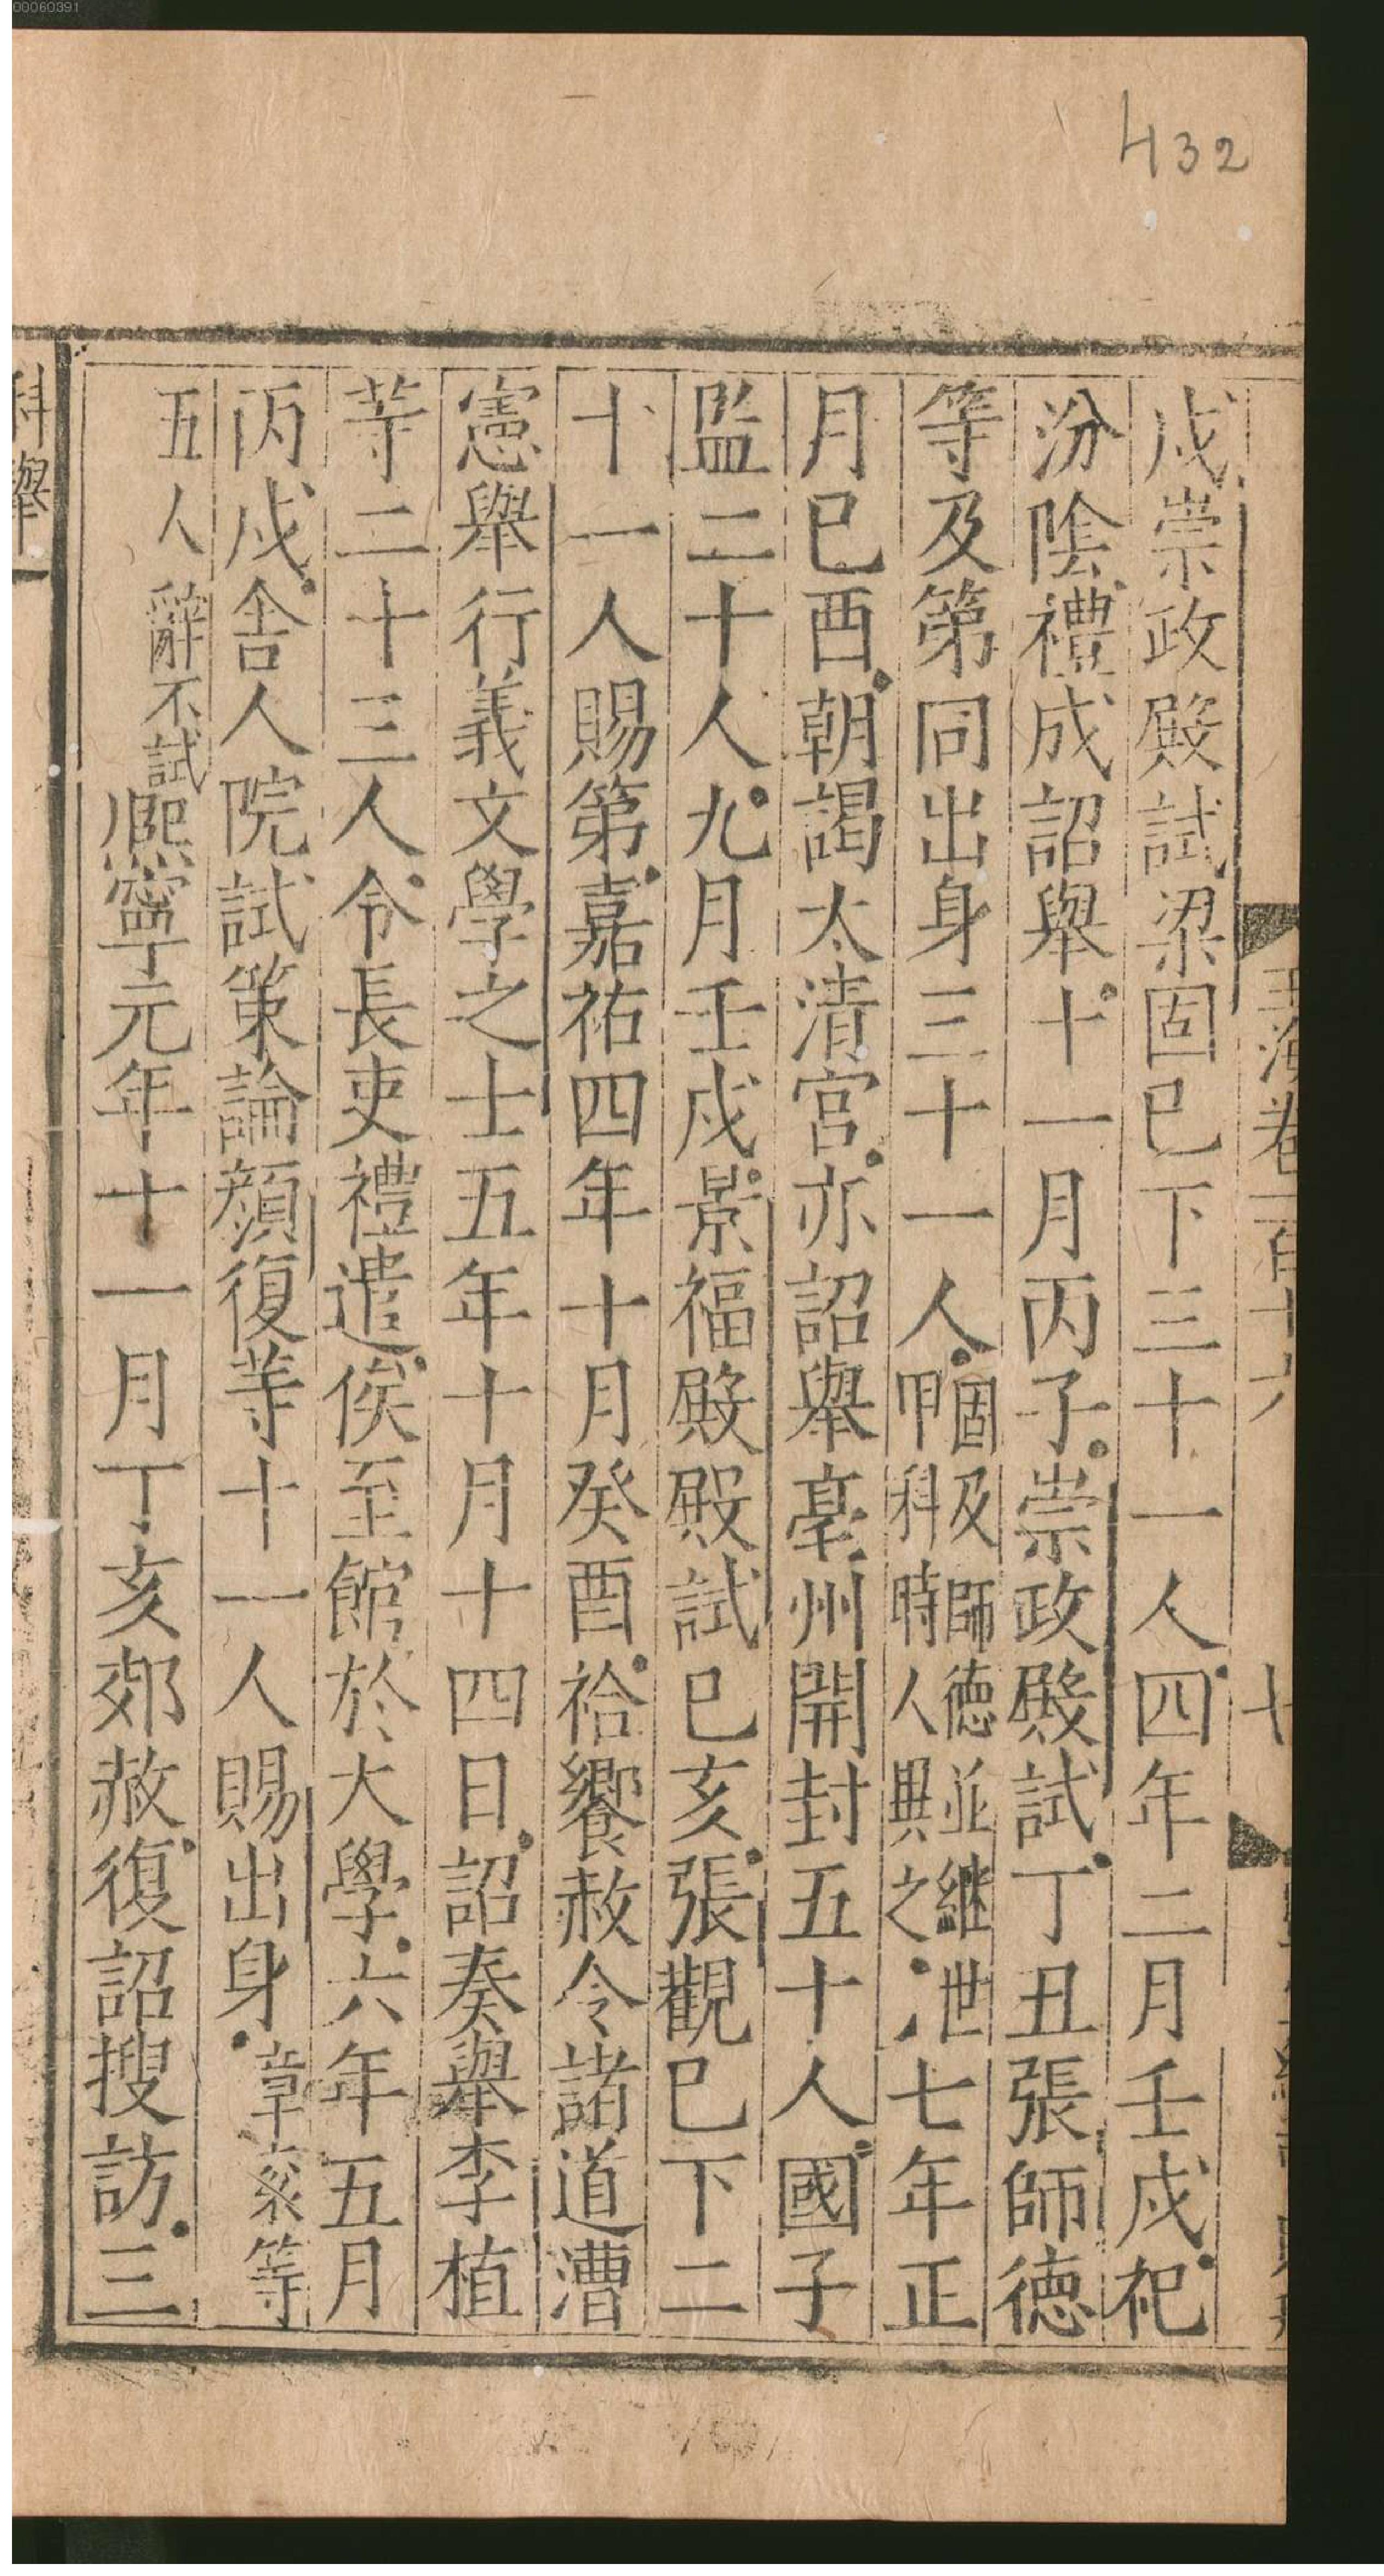 00060391
432
玉海卷一百十六
七
戌崇政殿試梁固已下三十一人四年二月壬戌祀
汾陰禮成詔舉十一月丙子崇政殿試丁丑張師德
等及第同出身三十一人固及師德並繼世甲科時人異之七年正
月已酉朝謁太清宮亦詔舉亳州開封五十人國子
監二十人九月壬戌景福殿殿試已亥張觀已下二
十一人賜第嘉祐四年十月癸酉祫饗赦令諸道漕
憲舉行義文學之士五年十月十四日詔奏舉李植
等二十三人令長吏禮遣俟至館於大學六年五月
丙戌舍人院試策論顔復等十一人賜出身章𥹭等
五人辭不試熈寧元年十一月丁亥郊赦復詔搜訪三
科舉